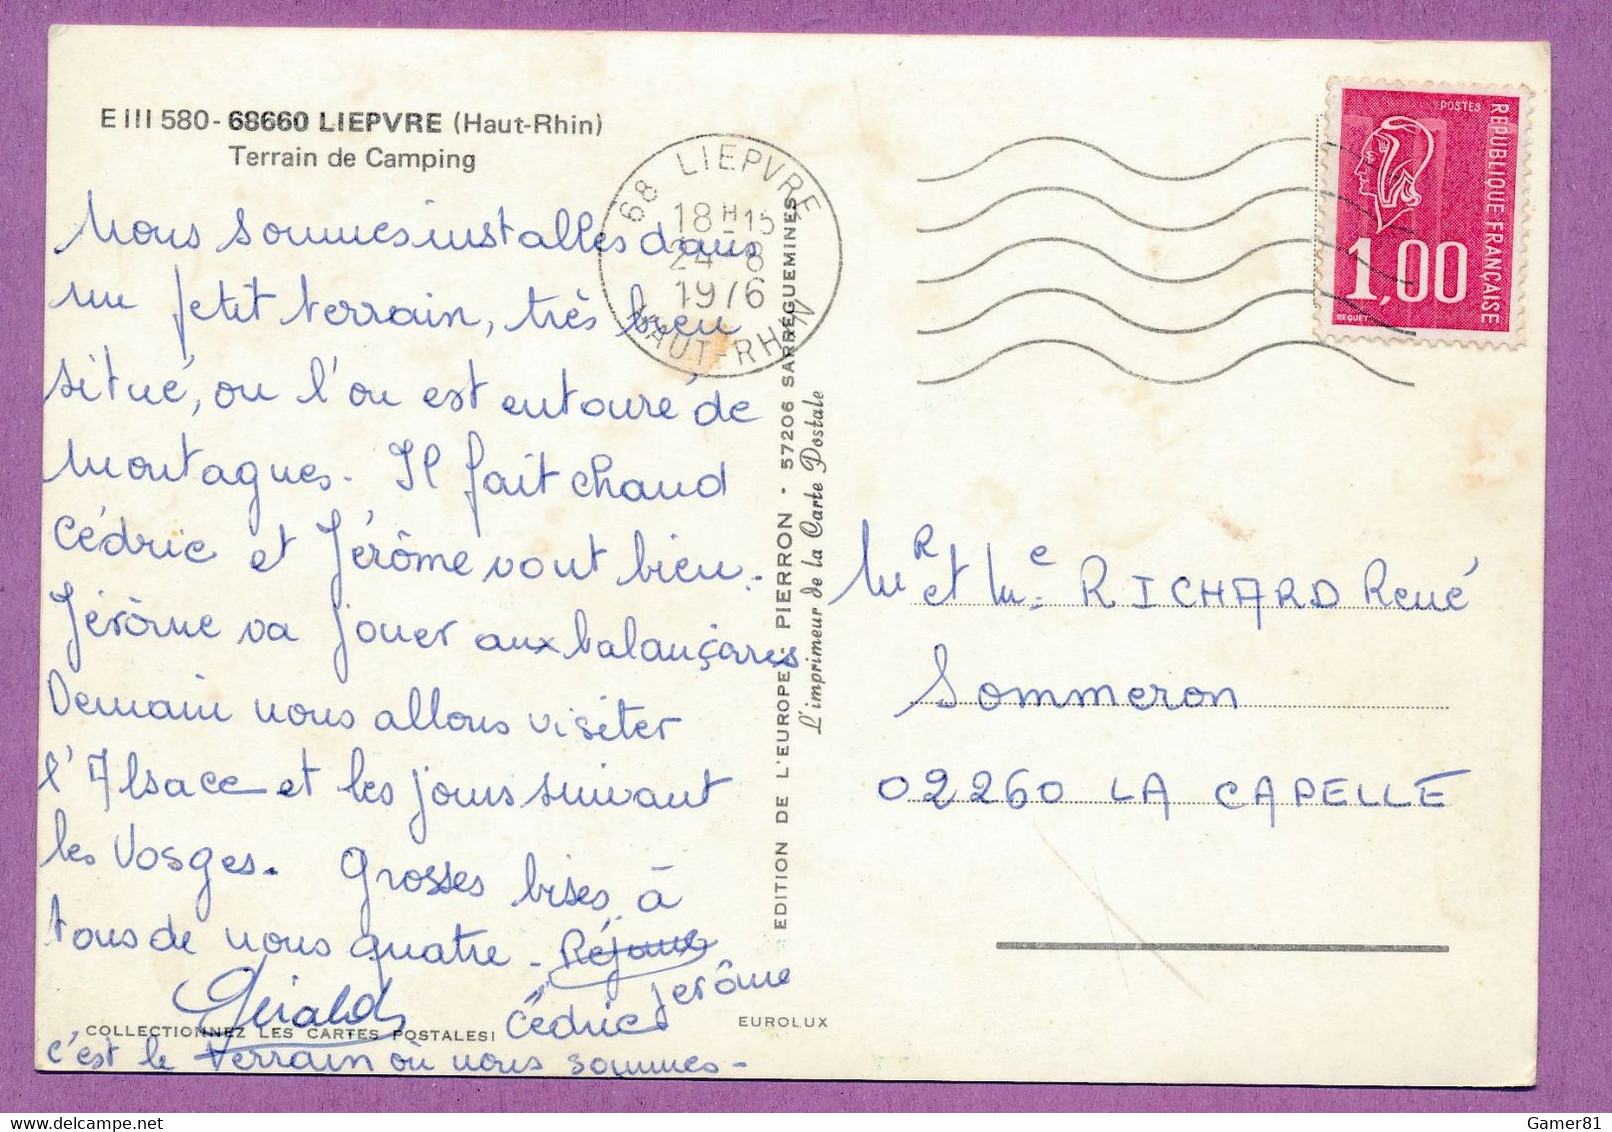 E III 580 - 68660 LIEPVRE (Haut-Rhin)
Terrain de Camping
Nous sommes installés dans
un petit terrain, très bien
situé, ou l'on est entouré de
montagnes. Il fait chaud
Cédric et Jérôme vont bien.
Jérôme va jouer aux balançares
Demain nous allons visiter
l'Alsace et les jours suivant
les Vosges. Grosses bises à
tous de nous quatre - Réjane
Gérald Cédric Jerôme
COLLECTIONNEZ LES CARTES POSTALES!
EUROLUX
c'est le terrain où nous sommes -
68 LIEPVRE
18H15
24-8
1976
HAUT-RHIN
EDITION DE L'EUROPE PIERRON - 57206 SARREGUEMINES
L'imprimeur de la Carte Postale
POSTES
REPUBLIQUE FRANÇAISE
1,00
BEQUET
Mr et Me RICHARD René
Sommeron
02260 LA CAPELLE
Gamer81